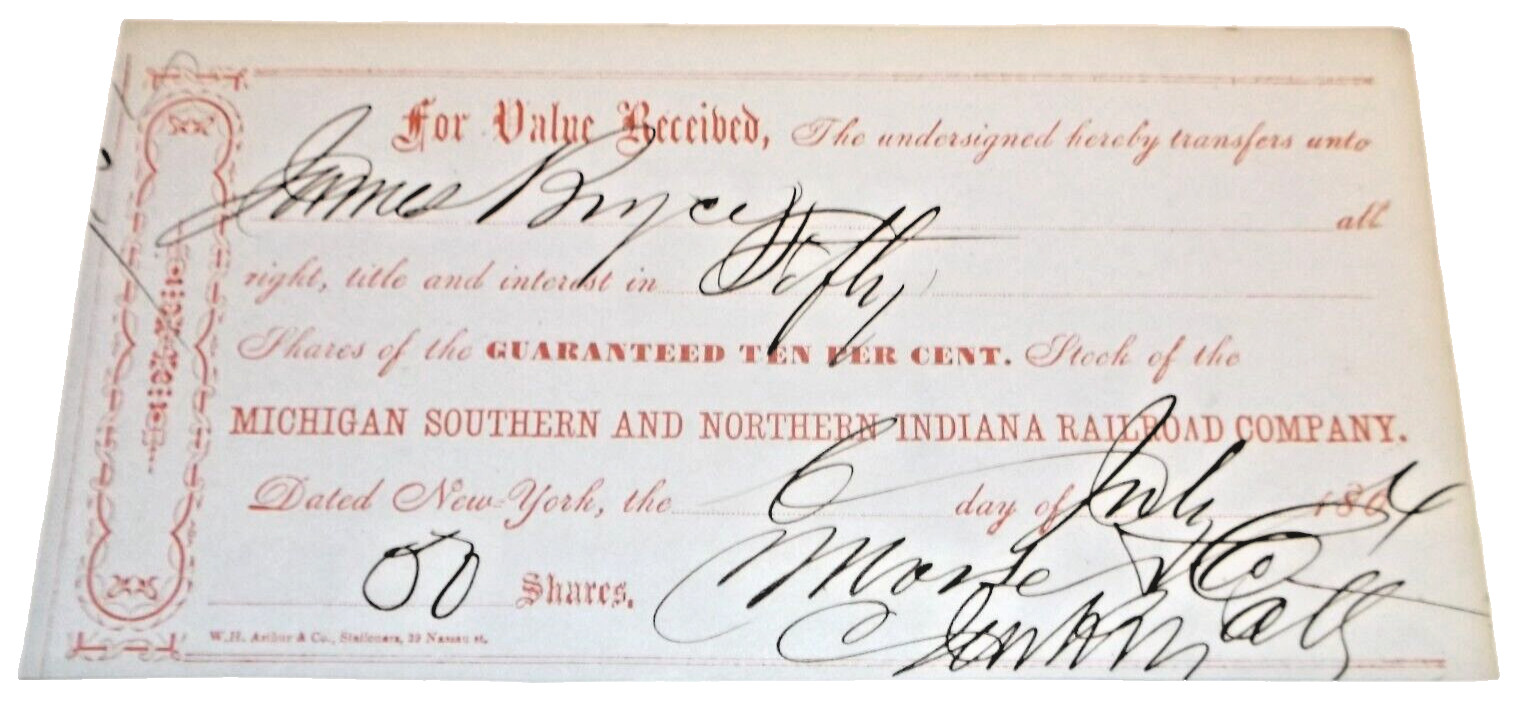 For Value Received, The undersigned hereby transfers unto
James Bryce all
right, title and interest in Fifty
Shares of the GUARANTEED TEN PER CENT. Stock of the
MICHIGAN SOUTHERN AND NORTHERN INDIANA RAILROAD COMPANY.
Dated New-York, the 6 day of July 1864
50 Shares. Morse & Co
W.H. Arthur & Co., Stationers, 39 Nassau st.